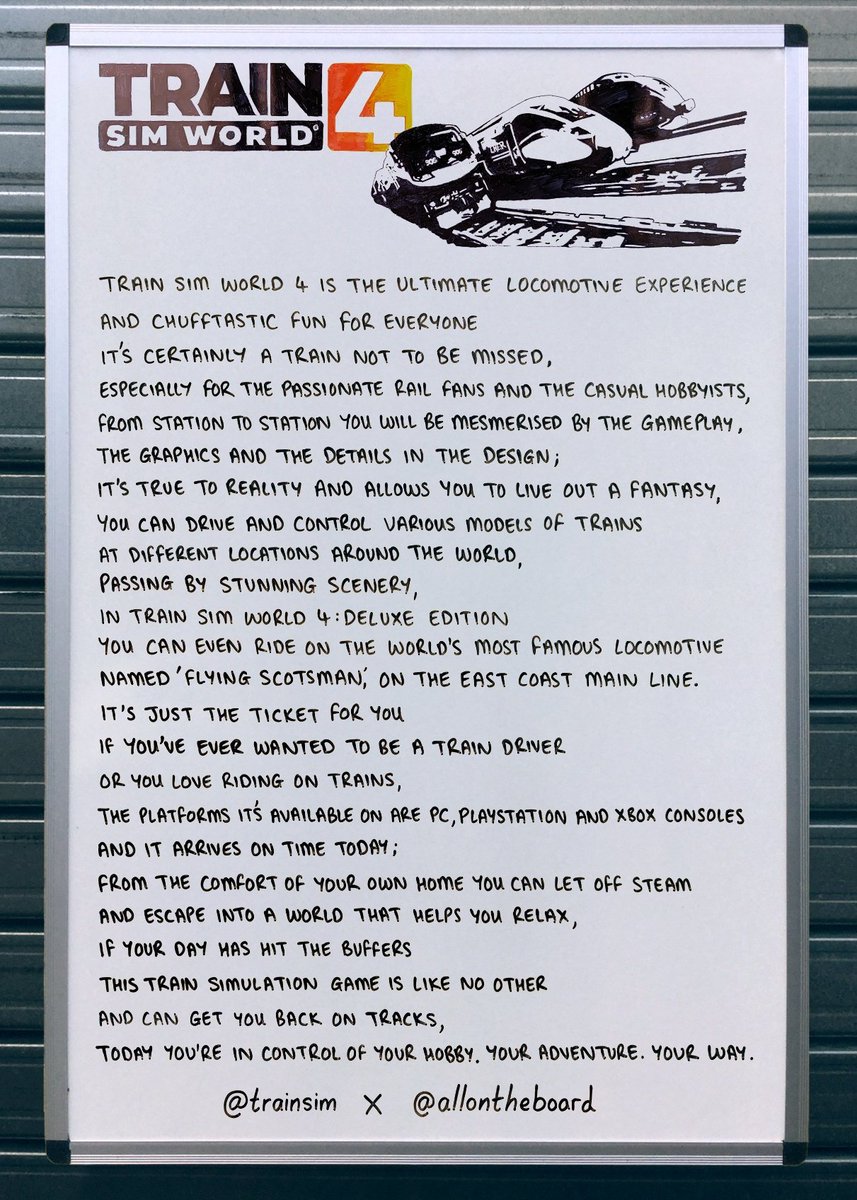 TRAIN 4
SIM WORLD®
TRAIN SIM WORLD 4 IS THE ULTIMATE LOCOMOTIVE EXPERIENCE
AND CHUFFTASTIC FUN FOR EVERYONE
IT'S CERTAINLY A TRAIN NOT TO BE MISSED,
ESPECIALLY FOR THE PASSIONATE RAIL FANS AND THE CASUAL HOBBYISTS,
FROM STATION TO STATION YOU WILL BE MESMERISED BY THE GAMEPLAY,
THE GRAPHICS AND THE DETAILS IN THE DESIGN;
IT'S TRUE TO REALITY AND ALLOWS YOU TO LIVE OUT A FANTASY,
YOU CAN DRIVE AND CONTROL VARIOUS MODELS OF TRAINS
AT DIFFERENT LOCATIONS AROUND THE WORLD,
PASSING BY STUNNING SCENERY,
IN TRAIN SIM WORLD 4: DELUXE EDITION
YOU CAN EVEN RIDE ON THE WORLD'S MOST FAMOUS LOCOMOTIVE
NAMED 'FLYING SCOTSMAN', ON THE EAST COAST MAIN LINE.
IT'S JUST THE TICKET FOR YOU
IF YOU'VE EVER WANTED TO BE A TRAIN DRIVER
OR YOU LOVE RIDING ON TRAINS,
THE PLATFORMS IT'S AVAILABLE ON ARE PC, PLAYSTATION AND XBOX CONSOLES
AND IT ARRIVES ON TIME TODAY;
FROM THE COMFORT OF YOUR OWN HOME YOU CAN LET OFF STEAM
AND ESCAPE INTO A WORLD THAT HELPS YOU RELAX,
IF YOUR DAY HAS HIT THE BUFFERS
THIS TRAIN SIMULATION GAME IS LIKE NO OTHER
AND CAN GET YOU BACK ON TRACKS,
TODAY YOU'RE IN CONTROL OF YOUR HOBBY. YOUR ADVENTURE. YOUR WAY.
@trainsim X @allontheboard